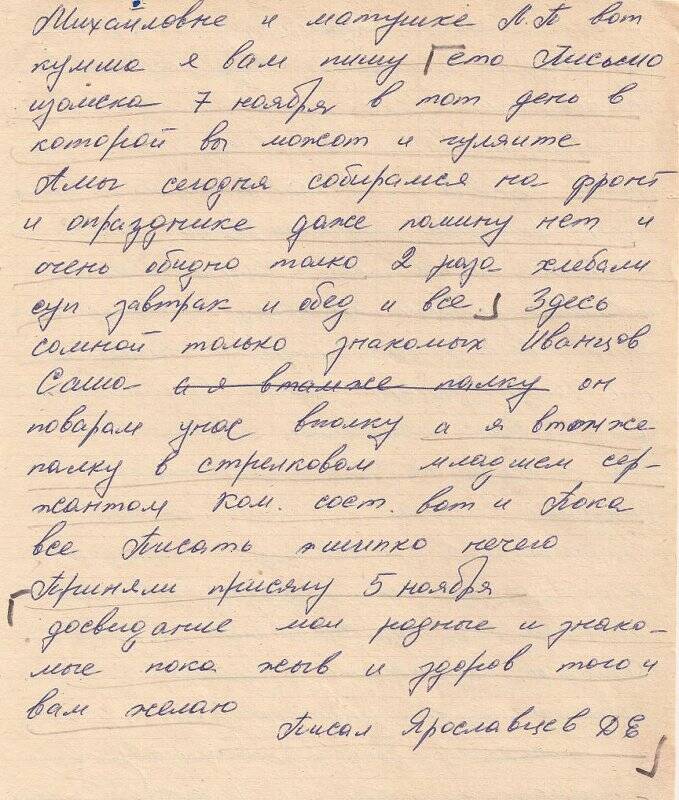 Михайловне и матушке Л.П вот
кумма я вам пишу ето Письмо
изомска 7 ноября в тот день в
которой вы можот и гуляите
Амы сегодня собирамся на фронт
и опразднике даже помину нет и
очень обидно толко 2 раза хлебали
суп завтрак и обед и все. Здесь
сомной только знакомых Иванцов
Саша а я втамже палку он
поварам унас вполку а я втомже
палку в стрелковом младшем сер-
жантом Ком. сост. вот и Пока
все Писать шипко нечего
Приняли присягу 5 ноября
досвидание мои родные и знако-
мые пока жыв и здоров того и
вам желаю
Писал Ярославцев Д Е